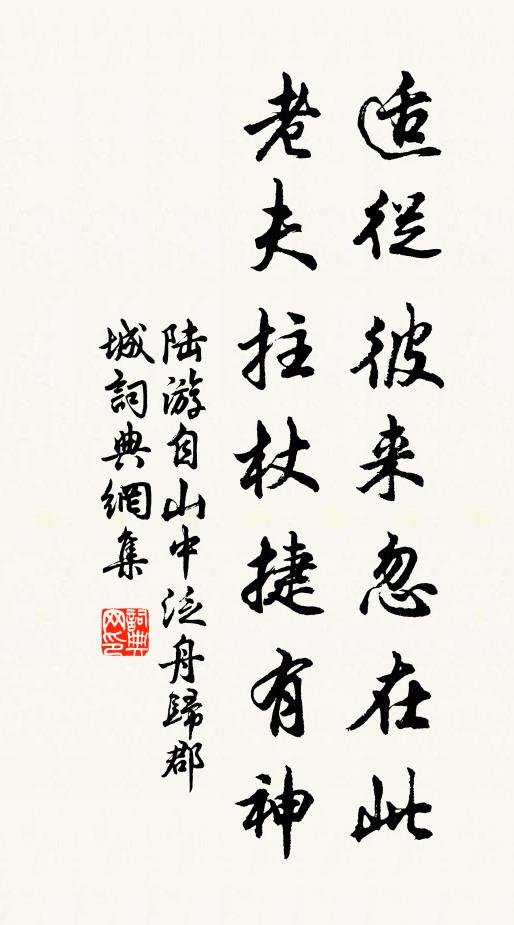 适從彼来忽在此
老夫拄杖捷有神
陆游自山中泛舟歸郡
城詞典網集
詞典网印